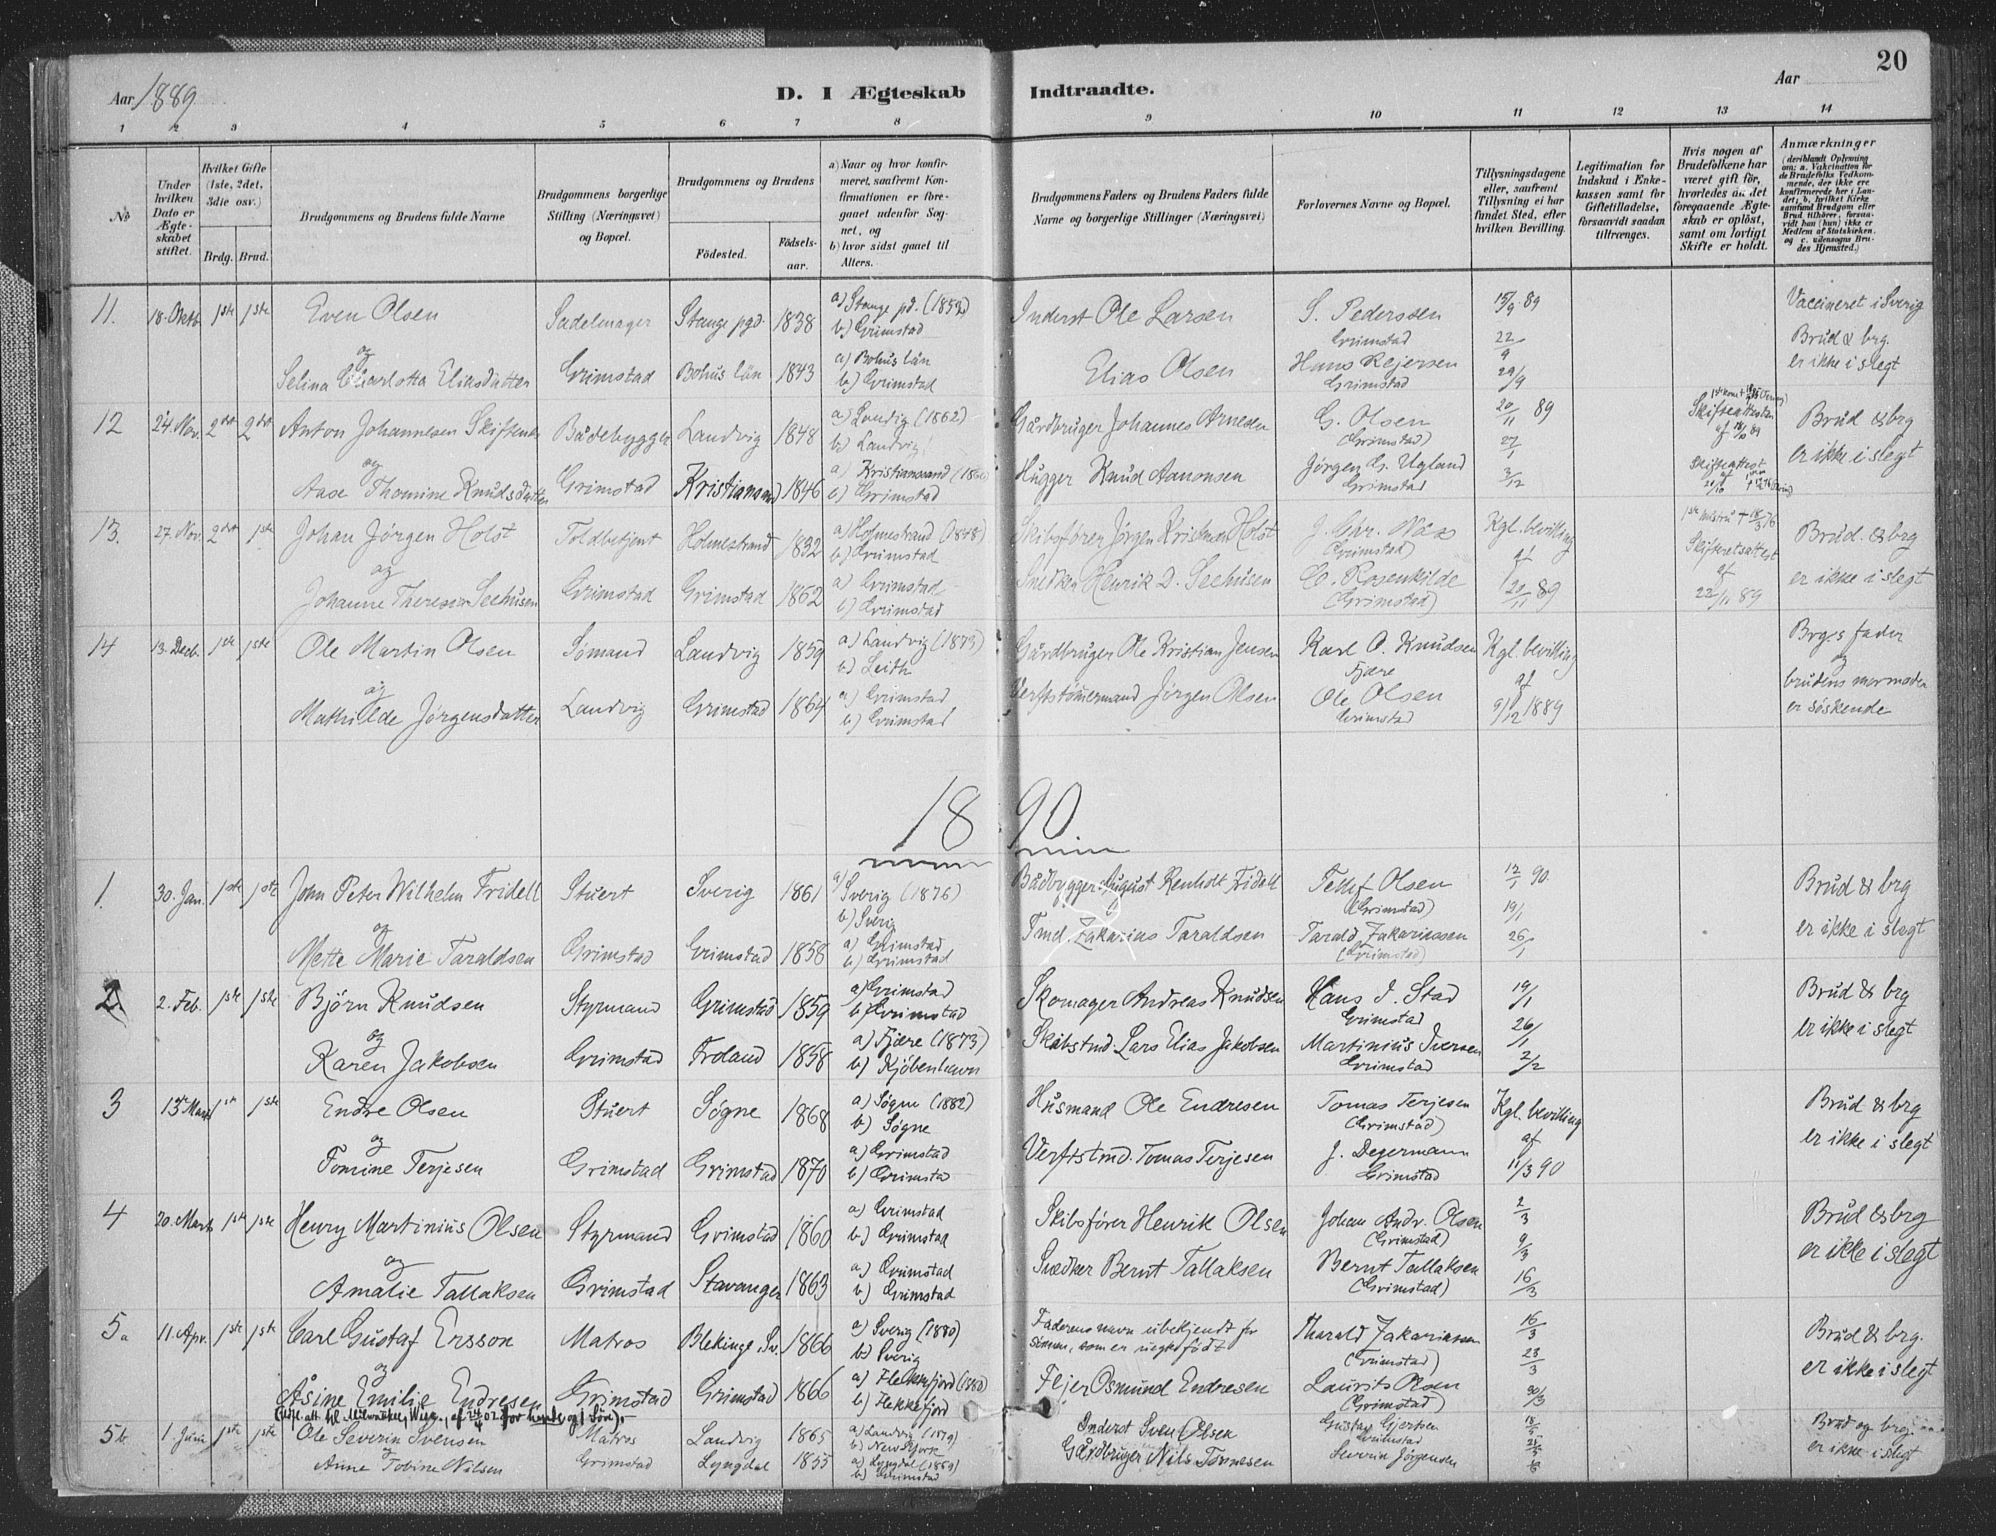 20
Aar 1889
D. I Ægteskab Indtraadte.
Aar
1 2 3 4 5 6 7 8 9 10 11 12 13 14
No
Under hvilken Dato er Ægteskabet stiftet.
Hvilket Gifte (1ste, 2det, 3die osv.)
Brdg. Brud.
Brudgommens og Brudens fulde Navne
Brudgommens borgerlige Stilling (Næringsvei) og Bopæl.
Brudgommens og Brudens
Födested.
Födselsaar.
a) Naar og hvor konfirmeret, saafremt Konfirmationen er foregaaet udenfor Sognet, og
b) hvor sidst gaaet til Alters.
Brudgommens Faders og Brudens Faders fulde Navne og borgerlige Stillinger (Næringsvei)
Forlovernes Navne og Bopæl.
Tillysningsdagene eller, saafremt Tillysning ei har fundet Sted, efter hvilken Bevilling.
Legitimation for Indskud i Enkekassen samt for Giftetilladelse, forsaavidt saadan tiltrænges.
Hvis nogen af Brudefolkene har været gift för, hvorledes da det foregaaende Ægteskab er oplöst, samt om lovligt Skifte er holdt.
Anmærkninger (deriblandt Oplysning om: a. Vaccination for de Brudefolks Vedkommende, der ikke ere konfirmerede her i Landet; b. hvilket Kirkesamfund Brudgom eller Brud tilhörer, forsaavidt han (hun) ikke er Medlem af Statskirken, og c. udensogns Brudes Hjemsted.)
11. 18. Oktb. 1ste 1ste Even Olsen Sadelmager Stange pgd. 1838 a) Stange pd. (1853) b) Grimstad Inderst Ole Larsen S. Pederssen Grimstad 15/9 89 Vaccineret i Sverig
og Selina Charlotta Eliasdatter Grimstad Bohus län 1843 a) Bohus län b) Grimstad Elias Olsen Hans Rejersen Grimstad 22/9 29/9 Brud & brg. er ikke i slegt
12 24. Nov. 2det 2det Anton Johannesen Skiftenes Bådebygger Landvig 1848 a) Landvig (1862) b) Landvig Gårdbruger Johannes Arnesen G. Olsen (Grimstad) 20/11 89 Skifteattest af 18/10 89 Brud & brg
og Aase Thomine Knudsdatter Grimstad Kristiansand 1846 a) Kristianssand (1860) b) Grimstad Hugger Knud Aanonsen Jørgen G. Ugland Grimstad 27/1 3/12 Skifteattest er ikke i slegt
13. 27. Nov. 2det 1ste Johan Jörgen Holst Toldbetjent Holmestrand 1832 a) Holmestrand (1848) b) Grimstad Skibsfören Jörgen Kristensen Holst J. Chr. Næs (Grimstad) Kgl. bevilling 1ste hustru + 18/3 76 Brud. & brg
og Johanne Theresia Seehusen Grimstad Grimstad 1862 a) Grimstad b) Grimstad Snedker Henrik D. Seehusen Co. Rosenkilde (Grimstad) af 20/11 89 Skifteretsattest af 22/11 89 er ikke i slegt
14 13. Decb. 1ste 1ste Ole Martin Olsen Sømand Landvig 1859 a) Landvig (1873) b) Leith Gårdbruger Ole Kristian Jensen Karl O. Knudsen Fjære Kgl. bevilling Brgs fader og
og Mathilde Jørgensdatter Landvig Grimstad 1864 a) Grimstad b) Grimstad Verftstömermand Jørgen Olsen Ole Olsen Grimstad af 9/12 1889 brudens mormoder er söskende
1890
1. 30. Jan. 1ste 1ste John Peter Wilhelm Fridell Stuert Sverig 1861 a) Sverig (1876) b) Sverig Bådbygger August Renholt Fridell Tellef Olsen (Grimstad) 12/1 90. Brud & brg
og Mette Marie Taraldsen Grimstad Grimstad 1858 a) Grimstad b) Grimstad Tmd. Zakarias Taraldsen Tarald Zakariassen (Grimstad) 19/1 26/1 er ikke i slegt
2. 2. Feb. 1ste 1ste Björn Knudsen Styrmand Grimstad 1859 a) Grimstad b) Grimstad Skomager Andreas Knudsen Hans J. Stad Grimstad 19/1 Brud & brg
og Karen Jakobsen Grimstad Froland 1858 a) Fjære (1873) b) Kjöbenhavn Skibstmd Lars Elias Jakobsen Martinius Iversen Grimstad 26/1 2/2 er ikke i slegt
3 13. Marts 1ste 1ste Endre Olsen Stuert Søgne 1868 a) Søgne (1882) b) Søgne Husmand Ole Endresen Tomas Terjesen (Grimstad) Kgl. bevilling Brud & brg
og Tomine Terjesen Grimstad Grimstad 1870 a) Grimstad b) Grimstad Verftstmd. Tomas Terjesen J. Degermann Grimstad af 11/3 90 er ikke i slegt
4 20. Marts 1ste 1ste Henry Martinius Olsen Styrmand Grimstad 1860 a) Grimstad b) Grimstad Skibsförer Henrik Olsen Johan Andr. Olsen (Grimstad) 2/3 Brud & brg
og Amalie Tallaksen Grimstad Stavanger 1863 a) Grimstad b) Grimstad Snedker Bernt Tallaksen Bernt Tallaksen (Grimstad) 9/3 16/3 er ikke i slegt
5a 11. Apr. 1ste 1ste Carl Gustaf Ersson Matros Blekinge, Sv. 1866 a) Sverig (1880) b) Sverig Faderens navn ubekjendt for sönnen, som er uegte födt Tharald Zakariassen (Grimstad) 16/3 Brud & brg.
og Åsine Emilie Endresen Grimstad Grimstad 1866 a) Flekkefjord (1880) b) Flekkefjord Fejer Osmund Endresen Laurits Olsen (Grimstad) 23/3 30/3 er ikke i slegt
5b 1. Juni 1ste 1ste Ole Severin Svensen Matros Landvig 1865 a) Landvig (1879) b) New York Inderst Sven Olsen Gustav Gjertsen Grimstad 18/5 Brud og brg.
og Anne Tobine Nilsen Grimstad Lyngdal 1855 a) Lyngdal (1869) b) Grimstad Gårdbruger Nils Tønnesen Severin Jörgensen 25/5 er ikke i slegt